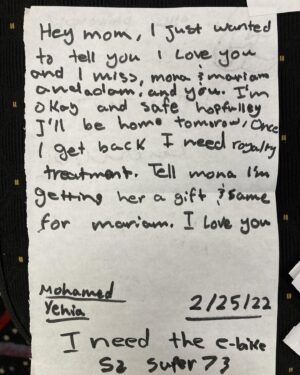 Hey mom, I just wanted
to tell you I Love you
and I miss, mona & mariam
and adam, and you. I'm
okay and safe hopfulley
I'll be home tomorrow, Once
I get back I need royalty
treatment. Tell mona I'm
getting her a gift & same
for mariam. I love you
Mohamed
Yehia
2/25/22
I need the e-bike
S2 Sufer 73